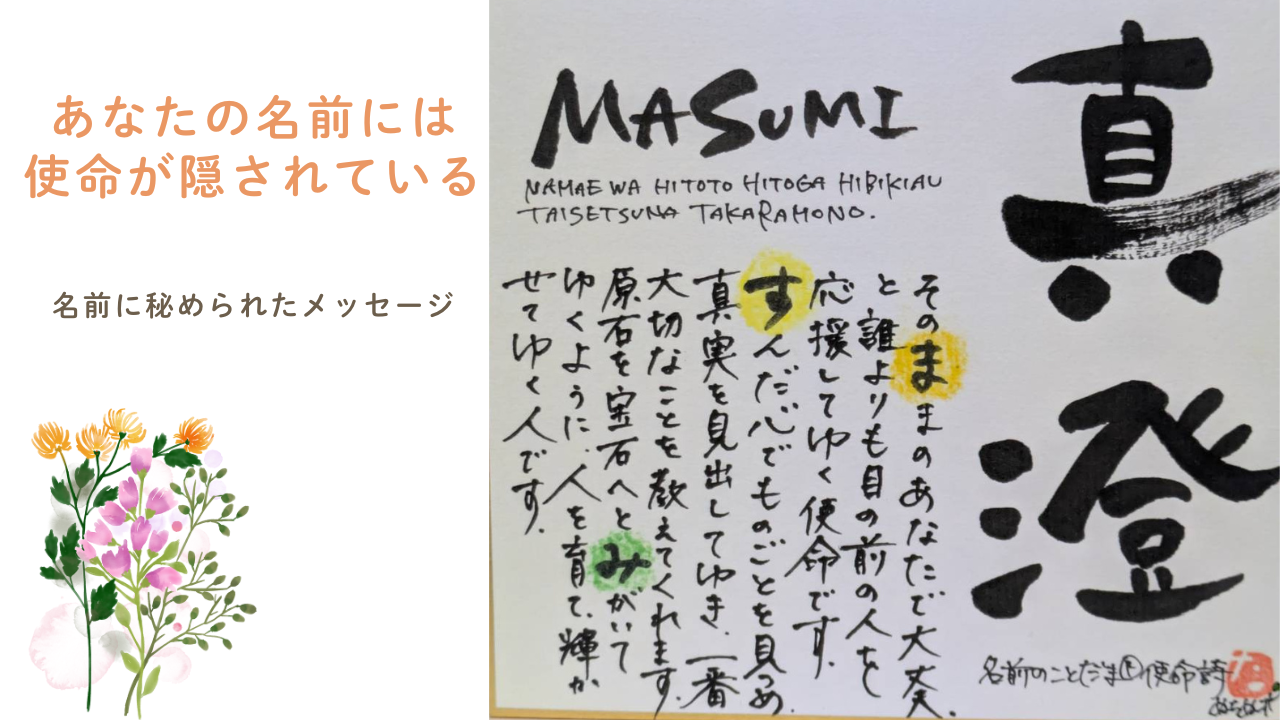 あなたの名前には
使命が隠されている
名前に秘められたメッセージ
真澄
MASUMI
NAMAE WA HITOTO HITOGA HIBIKIAU
TAISETSUNA TAKARAMONO.
そのままのあなたで大丈夫。
と誰よりも目の前の人を
応援してゆく使命です。
すんだ心でものごとを見つめ
真実を見出してゆき、一番
大切なことを教えてくれます。
原石を宝石へとみがいて
ゆくように、人を育て、輝か
せてゆく人です。
名前のことだま®使命詩